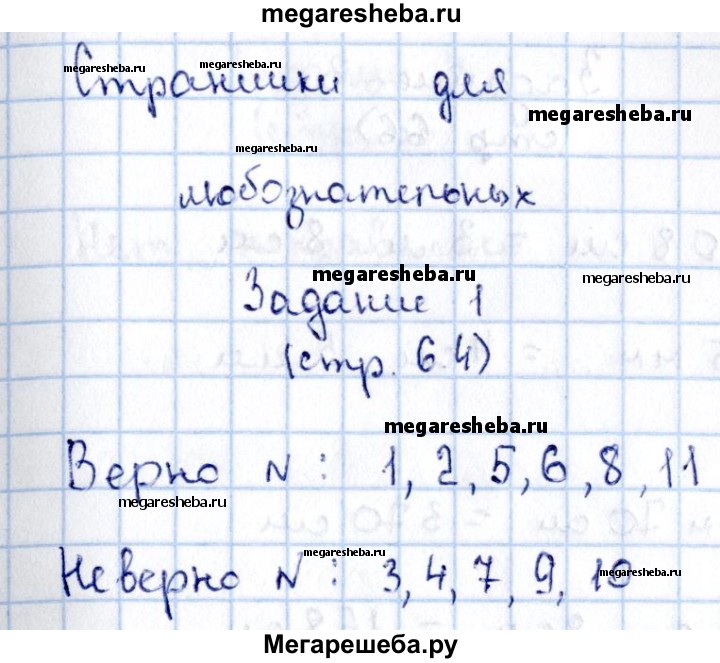 megaresheba.ru
megaresheba.ru megaresheba.ru
Странички для
megaresheba.ru
megaresheba.ru
любознательных
megaresheba.ru megaresheba.ru
Задание 1
(стр. 64)
megaresheba.ru
Верно N : 1, 2, 5, 6, 8, 11
megaresheba.ru
megaresheba.ru
Неверно N : 3, 4, 7, 9, 10
megaresheba.ru
Мегарешеба.ру